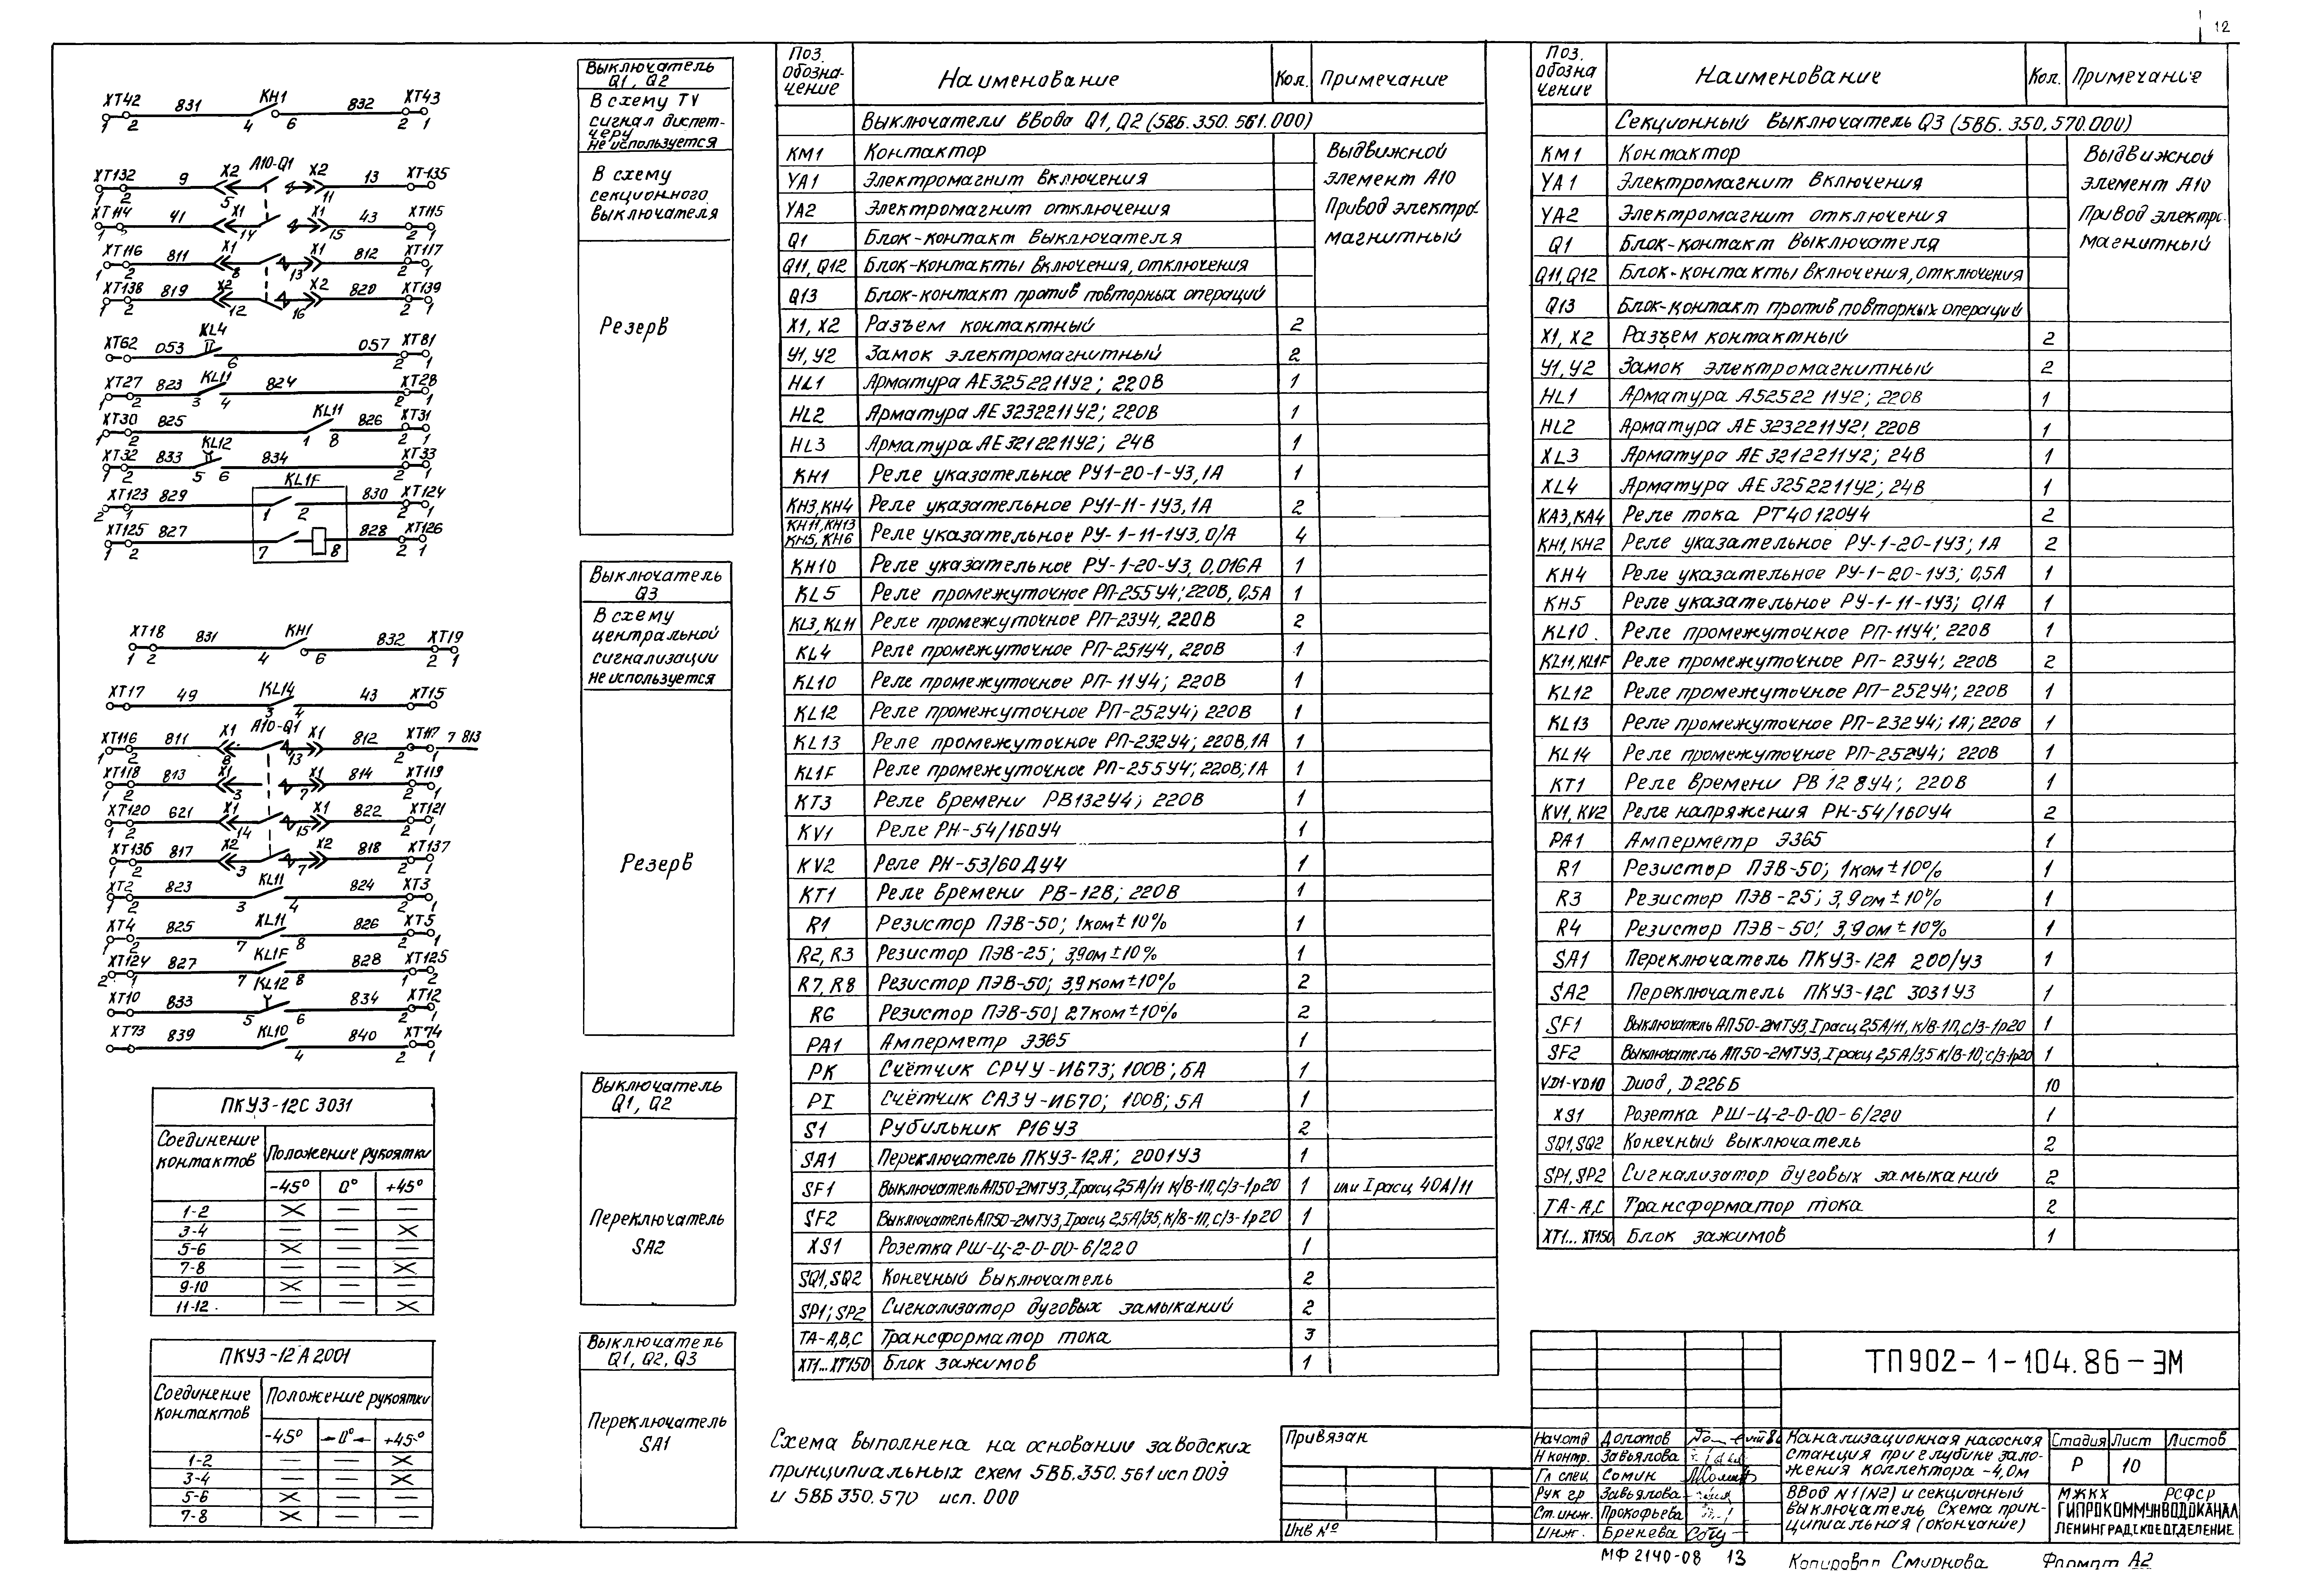 12
XT42 831 KH1 832 XT43
1 2 4 6 2 1
XT132 9 X2 A10-Q1 X2 13 XT-135
1 2 5 11
XT114 41 X1 X1 43 XT115
1 14 15 2 1
XT116 811 X1 X1 812 XT117
1 2 8 13 2 1
XT138 819 X2 X2 820 XT139
1 2 12 16 2 1
XT62 053 KL4 057 XT81
6 2 1
XT27 823 KL11 824 XT28
1 2 3 4 2 1
XT30 825 KL11 826 XT31
1 2 1 8 2 1
XT32 833 KL12 834 XT33
1 2 5 6 2 1
KL1F
XT123 829 830 XT124
2 1 1 2 2 1
XT125 827 828 XT126
1 2 7 8 2 1
XT18 831 KH1 832 XT19
1 2 4 6 2 1
XT17 49 KL14 43 XT15
3 4
XT116 811 X1 A10-Q1 X1 812 XT117 7 813
1 2 8 13 2 1
XT118 813 X1 X1 814 XT119
1 2 3 7 2 1
XT120 621 X1 X1 822 XT121
1 2 14 15 2 1
XT136 817 X2 X2 818 XT137
1 2 3 7 2 1
XT2 823 KL11 824 XT3
1 2 3 4 2 1
XT4 825 XL11 826 XT5
1 2 7 8 2 1
XT124 827 KL1F 828 XT125
2 1 7 8 1 2
XT10 833 KL12 834 XT12
1 2 5 6 2 1
XT73 839 KL10 840 XT74
4 2 1
Выключатель
Q1, Q2
В схему TV
сигнал диспет-
черу
не используется
В схему
секционного
выключателя
Резерв
Выключатель
Q3
В схему
центральной
сигнализации
не используется
Резерв
Выключатель
Q1, Q2
Переключатель
SA2
Выключатель
Q1, Q2, Q3
Переключатель
SA1
ПКУ3-12С 3031
Соединение контактов Положение рукоятки
-45° 0° +45°
1-2 × — —
3-4 — — ×
5-6 × — —
7-8 — — ×
9-10 × — —
11-12 — — ×
ПКУ3-12А2001
Соединение контактов Положение рукоятки
-45° 0° +45°
1-2 — — ×
3-4 — — ×
5-6 × — —
7-8 × — —
Поз. обозна-чение Наименование Кол. Примечание
Выключатели ввода Q1, Q2 (5ВБ.350.561.000)
KM1 Контактор Выдвижной
YA1 Электромагнит включения элемент А10
YA2 Электромагнит отключения Привод электро-
Q1 Блок-контакт выключателя магнитный
Q11, Q12 Блок-контакты включения, отключения
Q13 Блок-контакт против повторных операций
X1, X2 Разъем контактный 2
У1, У2 Замок электромагнитный 2
HL1 Арматура АЕ325221У2; 220В 1
HL2 Арматура АЕ323221У2; 220В 1
HL3 Арматура АЕ321221У2; 24В 1
KH1 Реле указательное РУ1-20-1-У3, 1А 1
KH3, KH4 Реле указательное РУ1-11-1У3, 1А 2
KH11, KH13 KH5, KH6 Реле указательное РУ-1-11-1У3, 0/А 4
KH10 Реле указательное РУ-1-20-У3, 0,016А 1
KL5 Реле промежуточное РП-255У4; 220В, 0,5А 1
KL3, KL11 Реле промежуточное РП-23У4, 220В 2
KL4 Реле промежуточное РП-251У4, 220В 1
KL10 Реле промежуточное РП-11У4; 220В 1
KL12 Реле промежуточное РП-252У4; 220В 1
KL13 Реле промежуточное РП-232У4; 220В, 1А 1
KL1F Реле промежуточное РП-255У4; 220В; 1А 1
KT3 Реле времени РВ132У4; 220В 1
KV1 Реле РН-54/160У4 1
KV2 Реле РН-53/60ДУ4 1
KT1 Реле времени РВ-12В; 220В 1
R1 Резистор ПЭВ-50; 1ком±10% 1
R2, R3 Резистор ПЭВ-25; 3,9ом±10% 1
R7, R8 Резистор ПЭВ-50; 3,9ком±10% 2
R6 Резистор ПЭВ-50; 27ком±10% 2
PA1 Амперметр Э365 1
PK Счётчик СРЧУ-И673; 100В; 5А 1
PI Счётчик САЗУ-И670; 100В; 5А 1
S1 Рубильник Р16У3 2
SA1 Переключатель ПКУ3-12А; 2001У3 1
SF1 Выключатель АП50-2МТУ3, Iрасц 2,5А/11 К/В-1П, С/З-1р20 1 или Iрасц 40А/11
SF2 Выключатель АП50-2МТУ3, Iрасц 2,5А/35, К/В-1П, С/З-1р20 1
XS1 Розетка РШ-Ц-2-0-00-6/220 1
SQ1, SQ2 Конечный выключатель 2
SP1; SP2 Сигнализатор дуговых замыканий 2
TA-A,B,C Трансформатор тока 3
XT1...XT150 Блок зажимов 1
Поз. обозна чение Наименование Кол. Примечание
Секционный выключатель Q3 (5ВБ.350.570.000)
KM1 Контактор Выдвижной
YA1 Электромагнит включения элемент А10
YA2 Электромагнит отключения Привод электро-
Q1 Блок-контакт выключателя магнитный
Q11, Q12 Блок-контакты включения, отключения
Q13 Блок-контакт против повторных операций
X1, X2 Разъем контактный 2
У1, У2 Замок электромагнитный 2
HL1 Арматура А52522 11У2; 220В 1
HL2 Арматура АЕ323221У2; 220В 1
XL3 Арматура АЕ321221У2; 24В 1
XL4 Арматура АЕ325221У2; 24В 1
KA3, KA4 Реле тока РТ40120У4 2
KH1, KH2 Реле указательное РУ-1-20-1У3; 1А 2
KH4 Реле указательное РУ-1-20-1У3; 0,5А 1
KH5 Реле указательное РУ-1-11-1У3; 0,1А 1
KL10 Реле промежуточное РП-11У4; 220В 1
KL11, KL1F Реле промежуточное РП-23У4; 220В 2
KL12 Реле промежуточное РП-252У4; 220В 1
KL13 Реле промежуточное РП-232У4; 1А; 220В 1
KL14 Реле промежуточное РП-252У4; 220В 1
KT1 Реле времени РВ 12 8У4; 220В 1
KV1, KV2 Реле напряжения РН-54/160У4 2
PA1 Амперметр Э365 1
R1 Резистор ПЭВ-50; 1ком±10% 1
R3 Резистор ПЭВ-25; 3,9ом±10% 1
R4 Резистор ПЭВ-50; 3,9ом±10% 1
SA1 Переключатель ПКУ3-12А 200/У3 1
SA2 Переключатель ПКУ3-12С 3031У3 1
SF1 Выключатель АП50-2МТУ3, Iрасц 2,5А/11, К/В-1П, С/З-1р20 1
SF2 Выключатель АП50-2МТУ3, Iрасц 2,5А/3,5 К/В-1П; С/З-1р20 1
VD1-VD10 Диод, Д226Б 10
XS1 Розетка РШ-Ц-2-0-00-6/220 1
SQ1, SQ2 Конечный выключатель 2
SP1, SP2 Сигнализатор дуговых замыканий 2
TA-A,C Трансформатор тока 2
XT1...XT150 Блок зажимов 1
Схема выполнена на основании заводских
принципиальных схем 5ВБ.350.561 исп 009
и 5ВБ350.570 исп. 000
Привязан
Инв №
ТП902-1-104.86-ЭМ
Нач.отд Долотов
Н контр. Завьялова
Гл спец Сомин
Рук гр Завьялова
Ст.инж. Прокофьева
Инж. Бренева
Канализационная насосная
станция при глубине зало-
жения коллектора -4,0м
Ввод N1(N2) и секционный
выключатель Схема прин-
ципиальная (окончание)
Стадия Лист Листов
Р 10
МЖКХ РСФСР
ГИПРОКОММУНВОДОКАНАЛ
ЛЕНИНГРАДСКОЕ ОТДЕЛЕНИЕ
МФ 2140-08 13
Копировал Смирнова Формат А2